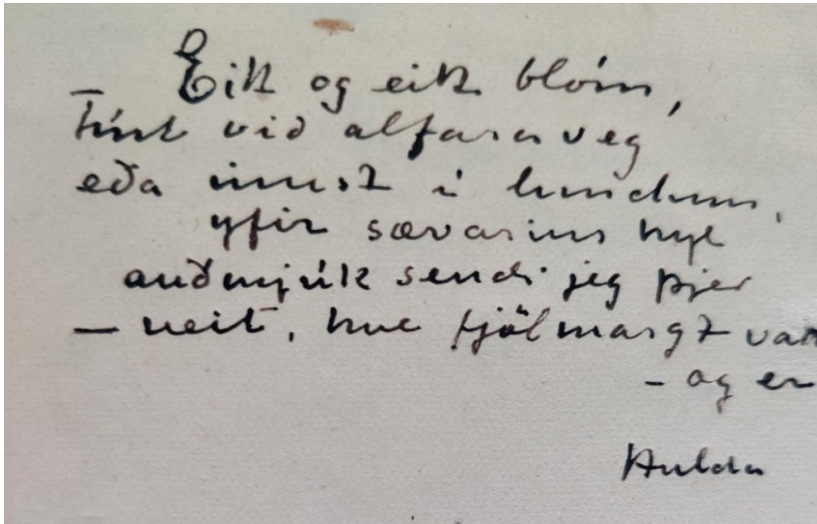 Eitt og eitt blóm,
týnt við alfaraveg
eða innst í lundum,
yfir sævarins hyl
auðmjúk sendi jeg þjer
— veit, hve fjölmargt var
— og er
Hulda